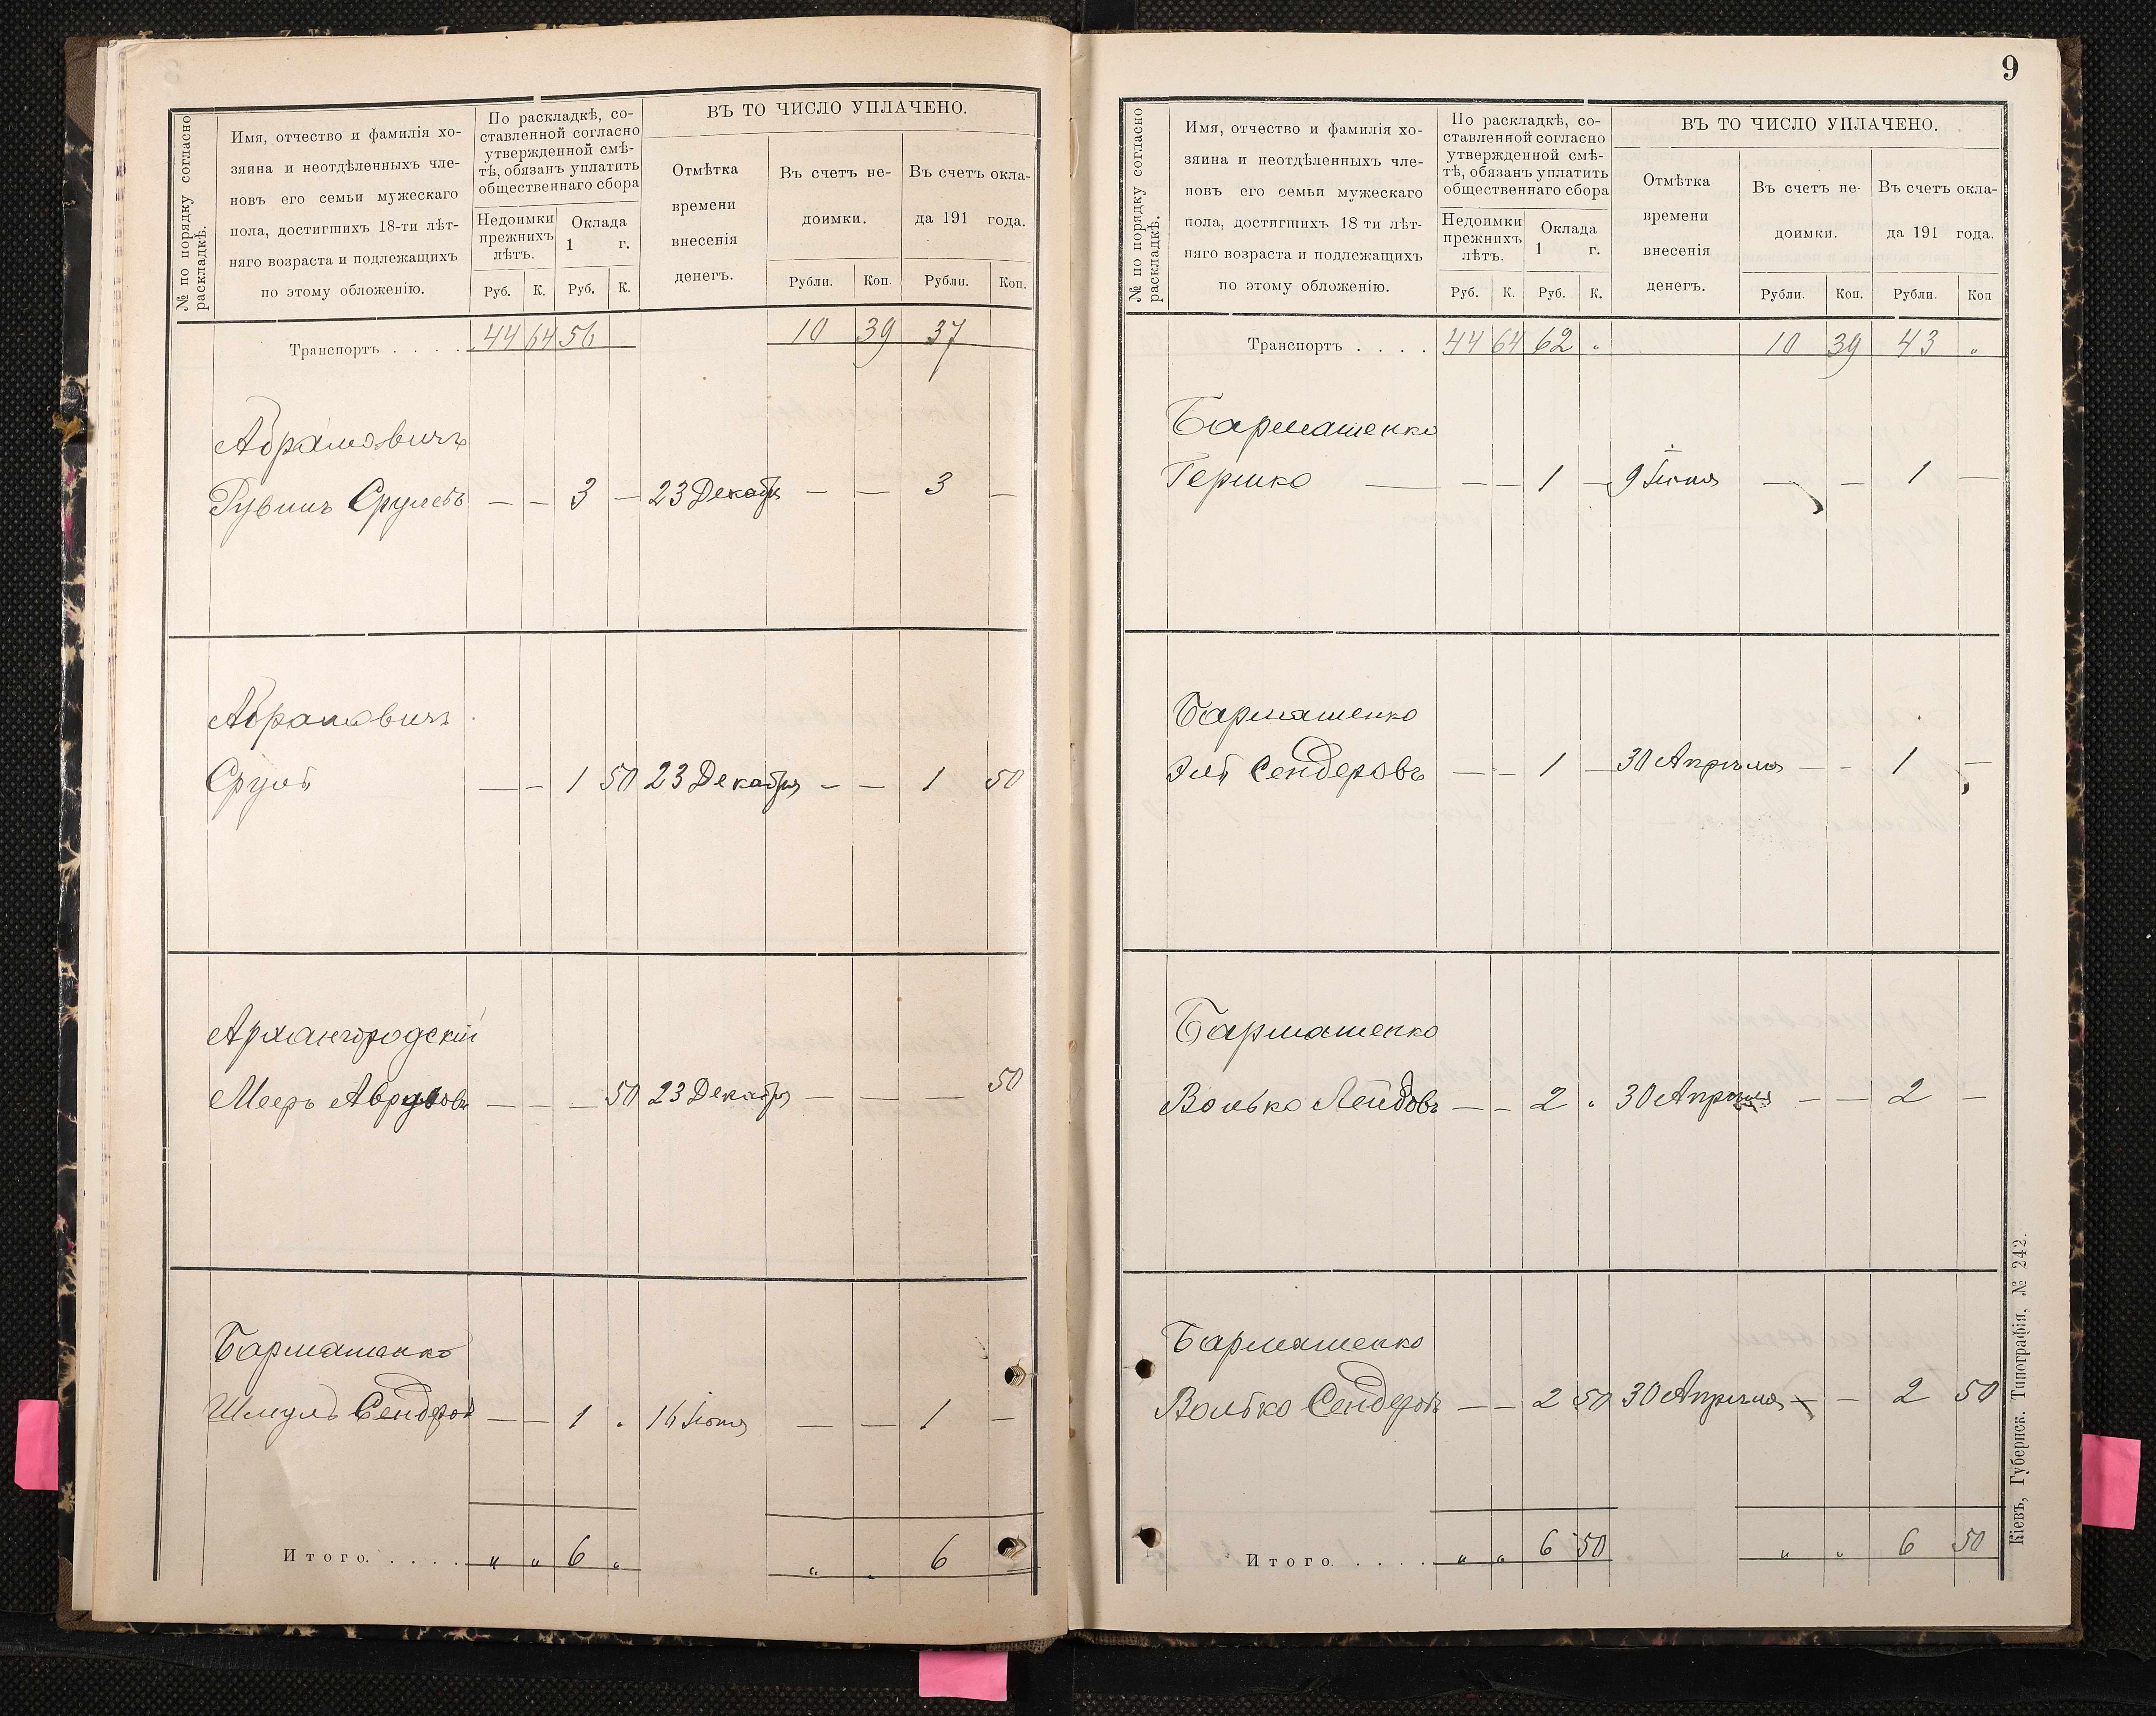 № по порядку согласно
раскладкѣ.
Имя, отчество и фамилія хо-
зяина и неотдѣленныхъ чле-
новъ его семьи мужескаго
пола, достигшихъ 18-ти лѣт-
няго возраста и подлежащихъ
по этому обложенію.
По раскладкѣ, со-
ставленной согласно
утвержденной смѣ-
тѣ, обязанъ уплатить
общественнаго сбора
Недоимки
прежнихъ
лѣтъ.
Оклада
1 г.
Руб. К. Руб. К.
ВЪ ТО ЧИСЛО УПЛАЧЕНО.
Отмѣтка
времени
внесенія
денегъ.
Въ счетъ не-
доимки.
Въ счетъ окла-
да 191 года.
Рубли. Коп. Рубли. Коп.
Транспортъ . . . . 44 64 56 10 39 37
Абрамовичъ
Рувинъ Срулевъ — — 3 — 23 Декабря — — 3 —
Абрамовичъ
Сруль — — 1 50 23 Декабря — — 1 50
Архангородскій
Мееръ — — — 50 23 Декабря — — — 50
Бармашенко
Шмуль Сендеров — — 1 „ 16 Іюня — — 1 —
Итого. . . . . „ „ 6 „ „ „ 6
9
№ по порядку согласно
раскладкѣ.
Имя, отчество и фамилія хо-
зяина и неотдѣленныхъ чле-
новъ его семьи мужескаго
пола, достигшихъ 18 ти лѣт-
няго возраста и подлежащихъ
по этому обложенію.
По раскладкѣ, со-
ставленной согласно
утвержденной смѣ-
тѣ, обязанъ уплатить
общественнаго сбора
Недоимки
прежнихъ
лѣтъ.
Оклада
1 г.
Руб. К. Руб. К.
ВЪ ТО ЧИСЛО УПЛАЧЕНО.
Отмѣтка
времени
внесенія
денегъ.
Въ счетъ не-
доимки.
Въ счетъ окла-
да 191 года.
Рубли. Коп. Рубли. Коп
Транспортъ . . . . 44 64 62 „ 10 39 43 „
Бармашенко
Гершко — — — 1 — 9 Іюня — — 1 —
Бармашенко
Эль Сендеровъ — — 1 — 30 Апрѣля — — 1 —
Бармашенко
Волько Лейбовъ — — 2 „ 30 Апрѣля — — 2 —
Бармашенко
Волько Сендеровъ — — 2 50 30 Апрѣля — — 2 50
Итого. . . . . „ „ 6 50 „ „ 6 50
Кіевъ, Губернск. Типографія, № 242.